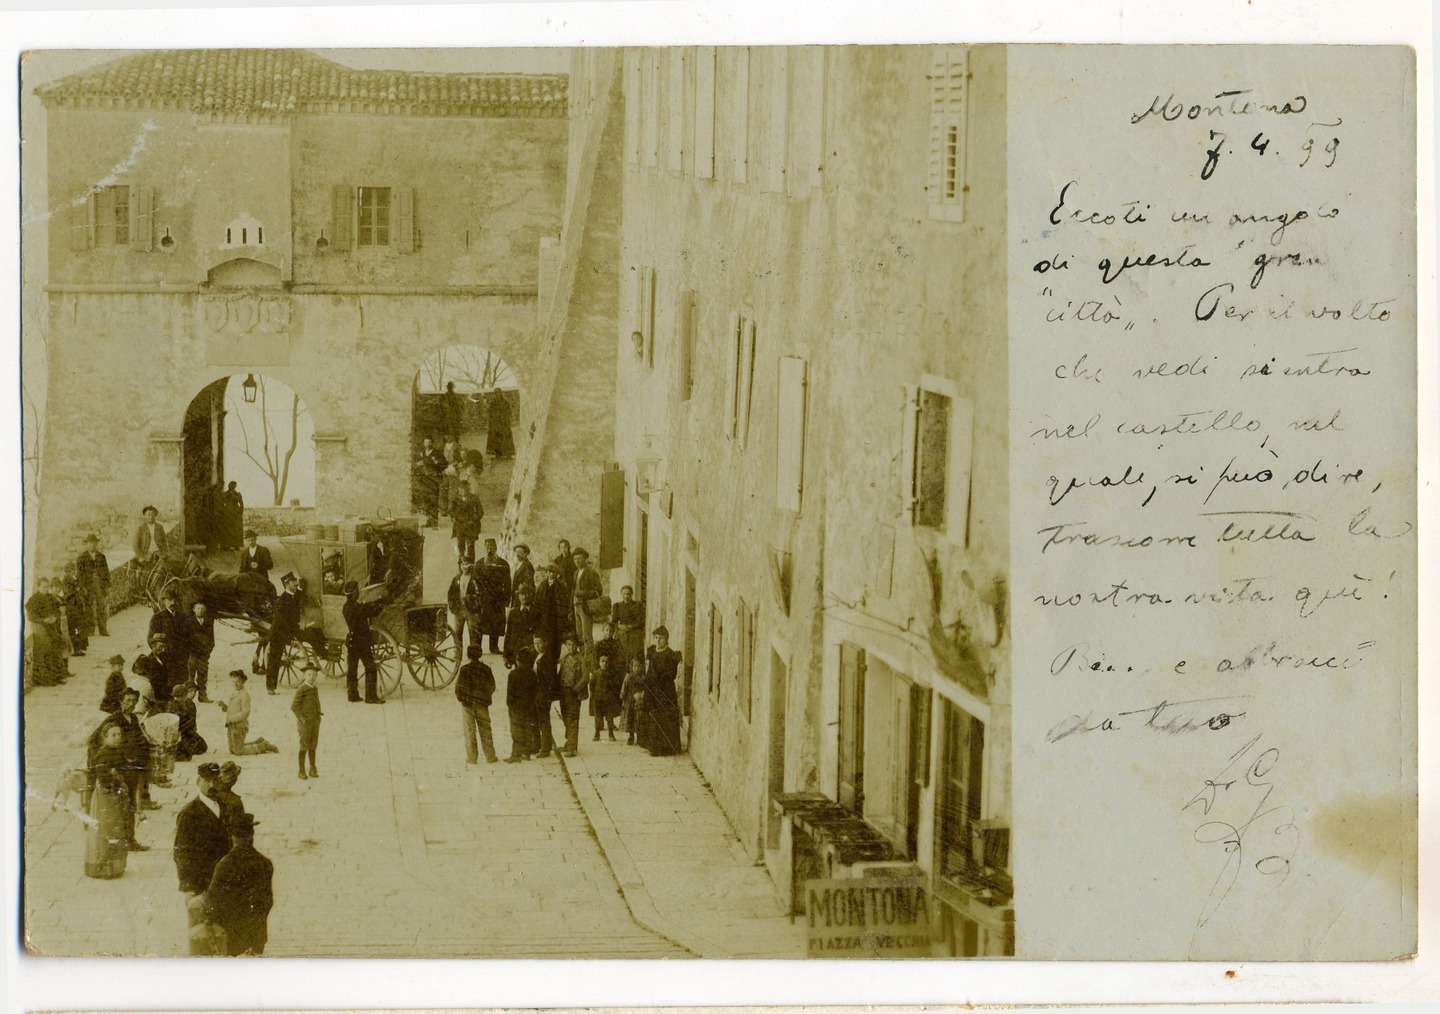 Montona
7. 4. 99
Eccoti un angolo
di questa "gran
"città„. Per il volto
che vedi si entra
nel castello, nel
quale, si può dire,
trascorre tutta la
nostra vita quì!
e abbracci
da tuo
MONTONA
PIAZZA VECCHIA